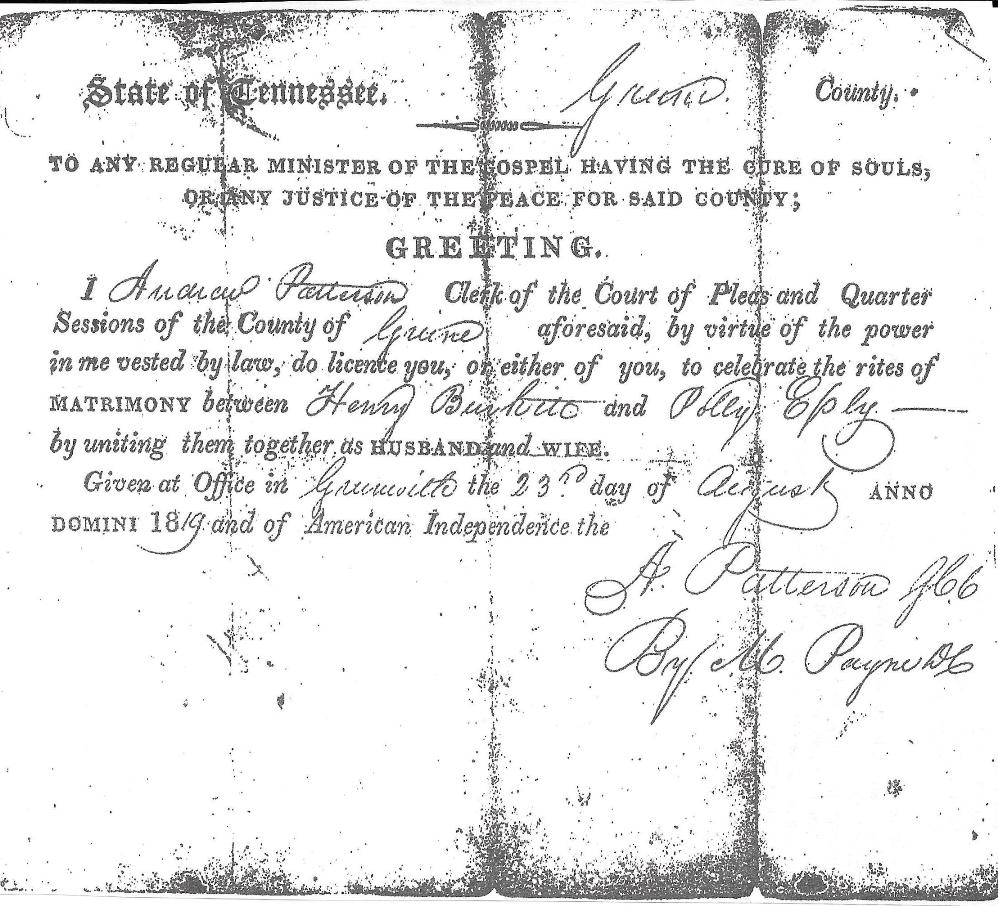 State of Tennessee. Greene County.
TO ANY REGULAR MINISTER OF THE GOSPEL HAVING THE CURE OF SOULS,
OR ANY JUSTICE OF THE PEACE FOR SAID COUNTY;
GREETING.
I Andrew Patterson Clerk of the Court of Pleas and Quarter
Sessions of the County of Greene aforesaid, by virtue of the power
in me vested by law, do licence you, or either of you, to celebrate the rites of
MATRIMONY between Henry Burkitt and Polly Eply
by uniting them together as HUSBAND and WIFE.
Given at Office in Greenville the 23rd day of August ANNO
DOMINI 1819 and of American Independence the
A. Patterson
By M. Payne DC